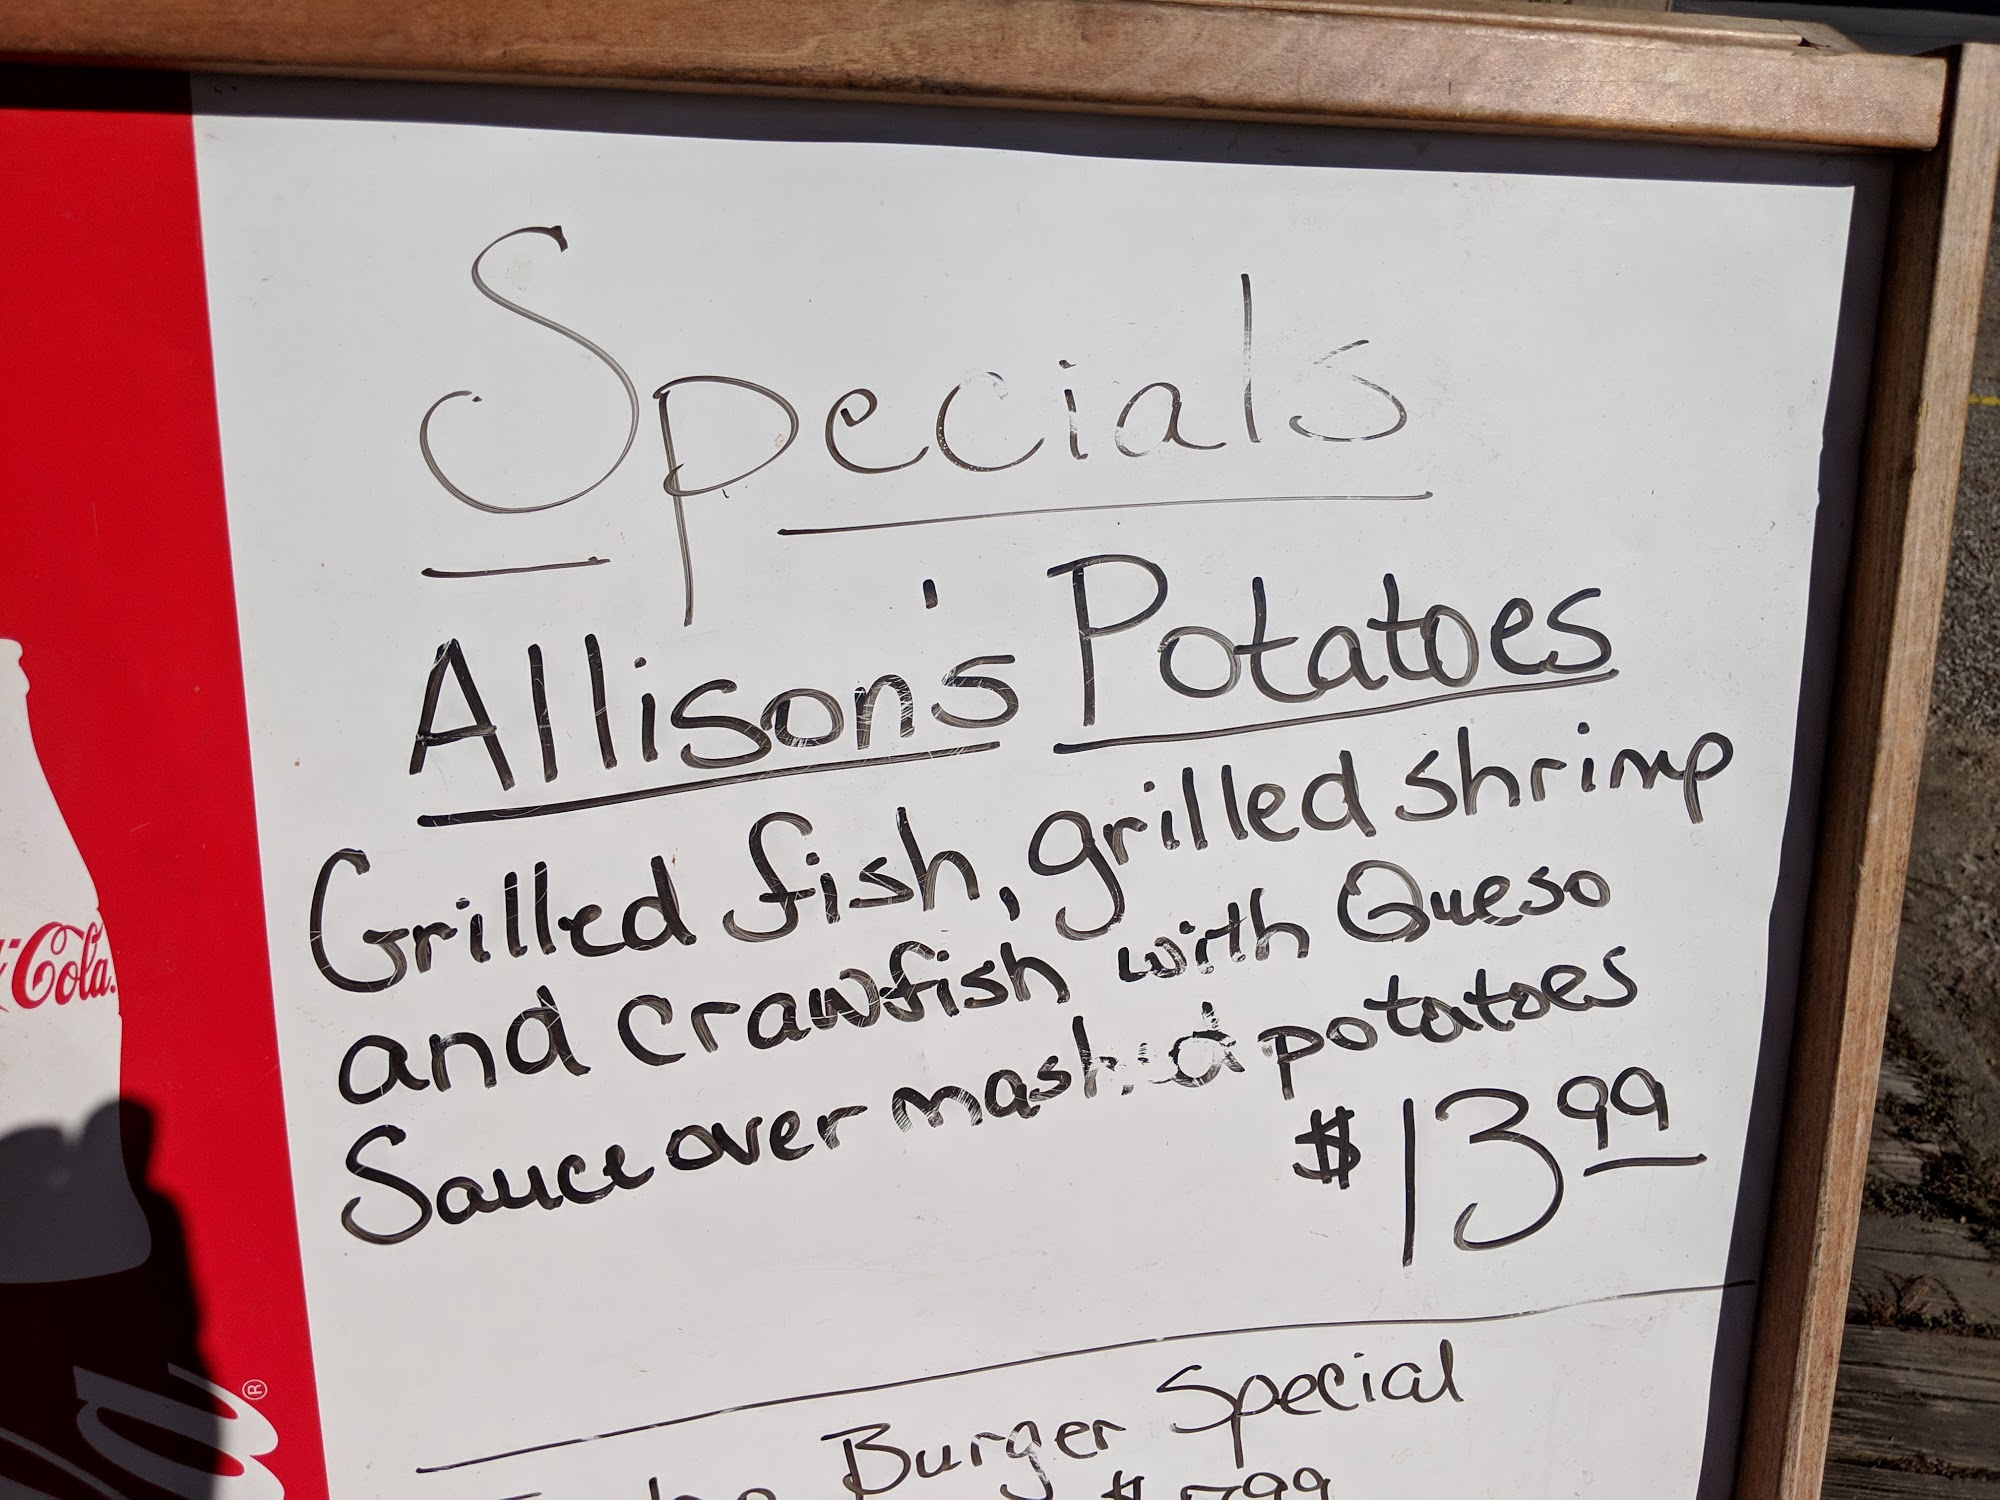 Specials
Allison's Potatoes
Grilled fish, grilled shrimp
and crawfish with Queso
Sauce over mashed potatoes
$13.99
Burger Special
Cola
®